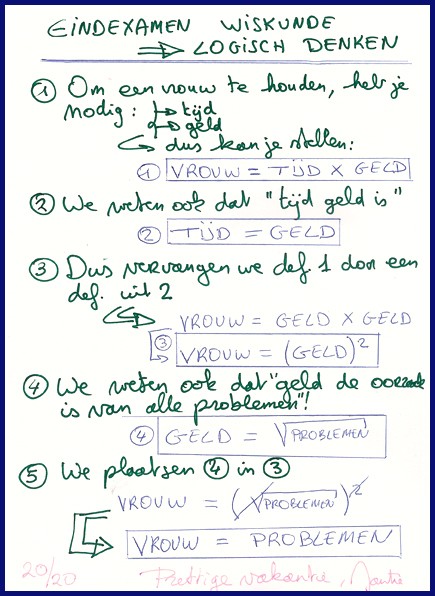 EINDEXAMEN WISKUNDE
⇒ LOGISCH DENKEN
① Om een vrouw te houden, heb je
nodig: → tijd
→ geld
↪ dus kan je stellen:
① VROUW = TIJD X GELD
② We weten ook dat "tijd geld is"
② TIJD = GELD
③ Dus vervangen we def. 1 door een
def. uit 2
VROUW = GELD X GELD
③ VROUW = (GELD)²
④ We weten ook dat "geld de oorzaak
is van alle problemen"!
④ GELD = √PROBLEMEN
⑤ We plaatsen ④ in ③
VROUW = (√PROBLEMEN)²
VROUW = PROBLEMEN
20/20 Prettige vakantie,